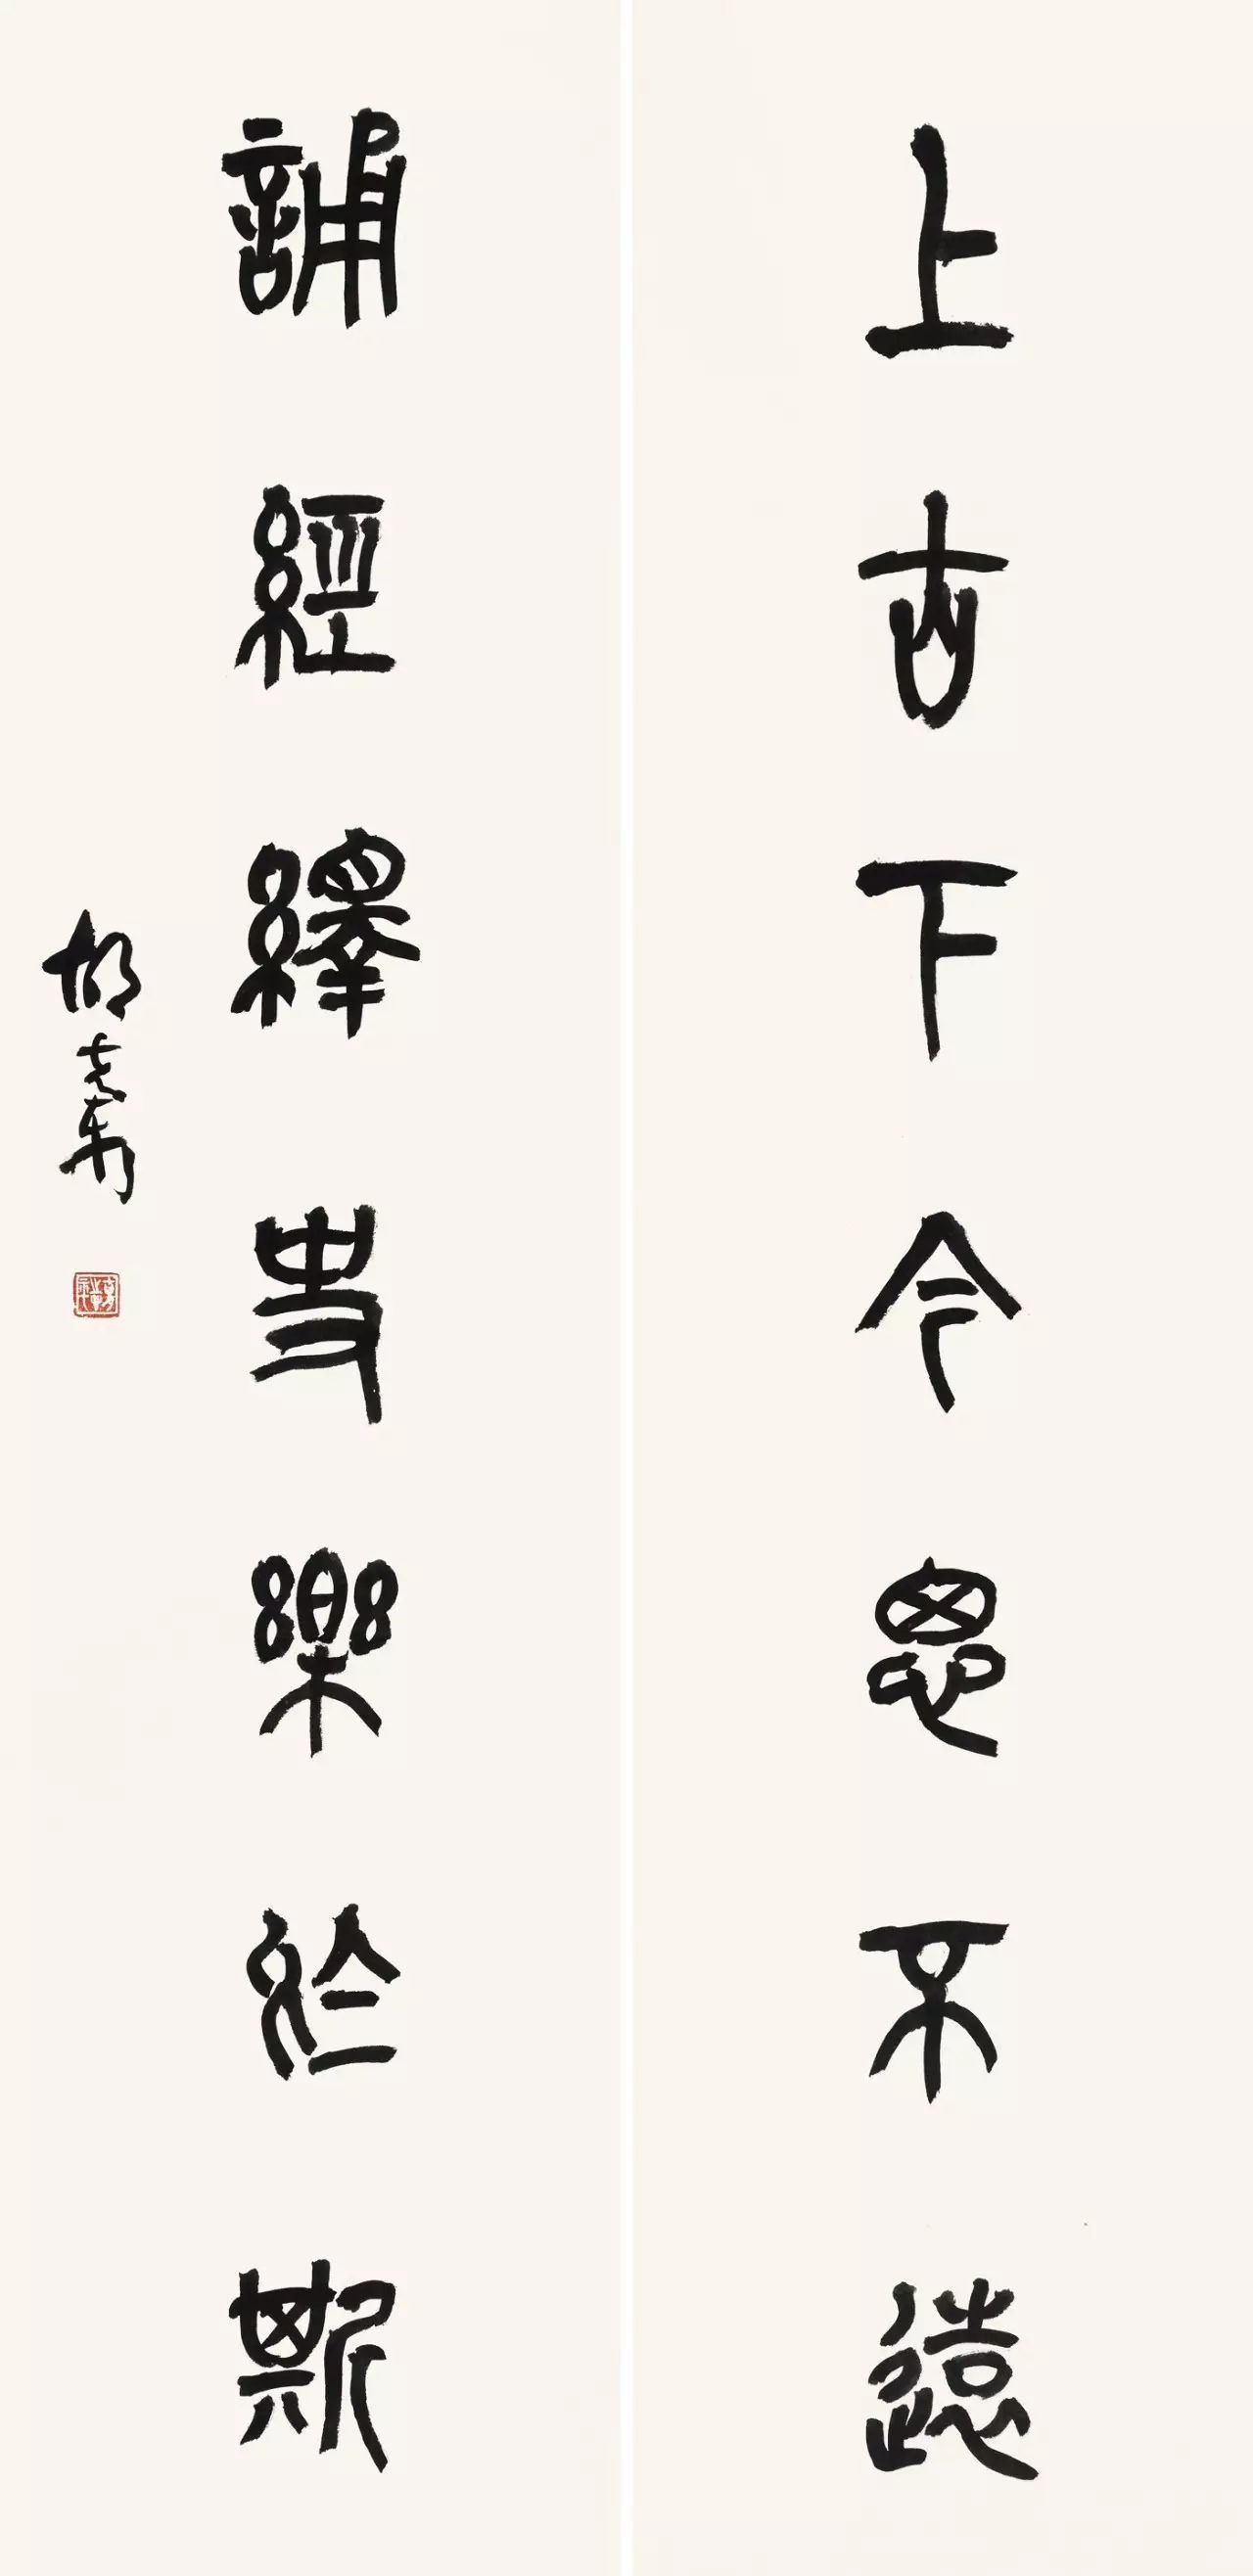 上古下今思不遠
誦經繹史樂於斯
胡